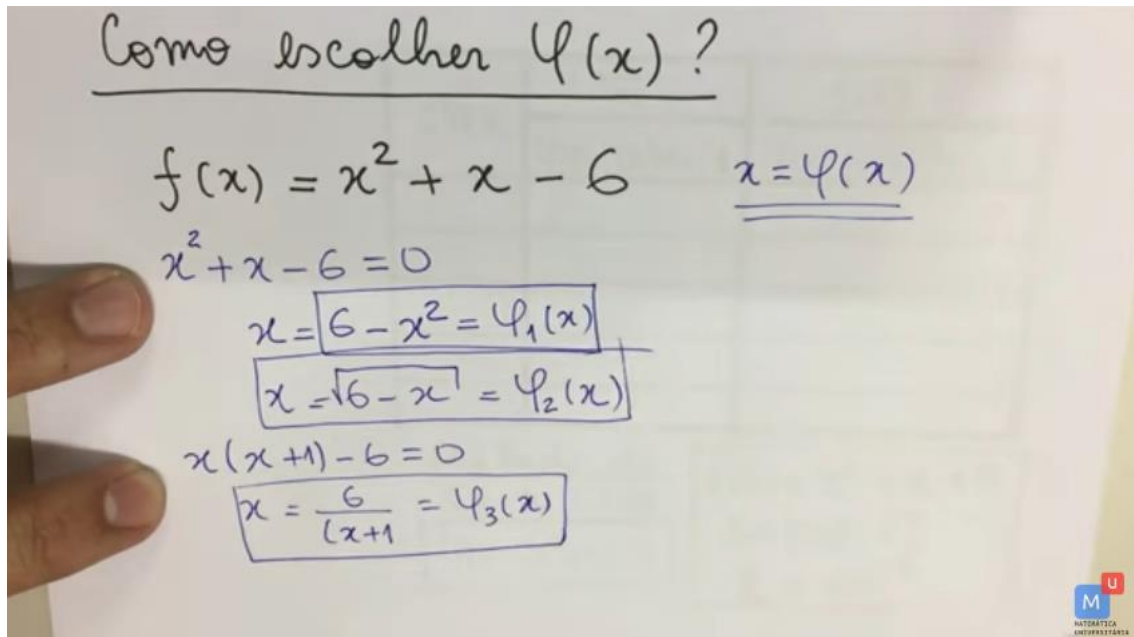 Como escolher φ(x) ?
f(x) = x² + x - 6
x = φ(x)
x² + x - 6 = 0
x = 6 - x² = φ₁(x)
x = √6 - x = φ₂(x)
x(x+1) - 6 = 0
x = 6/(x+1 = φ₃(x)
M U
MATEMÁTICA
UNIVERSITÁRIA